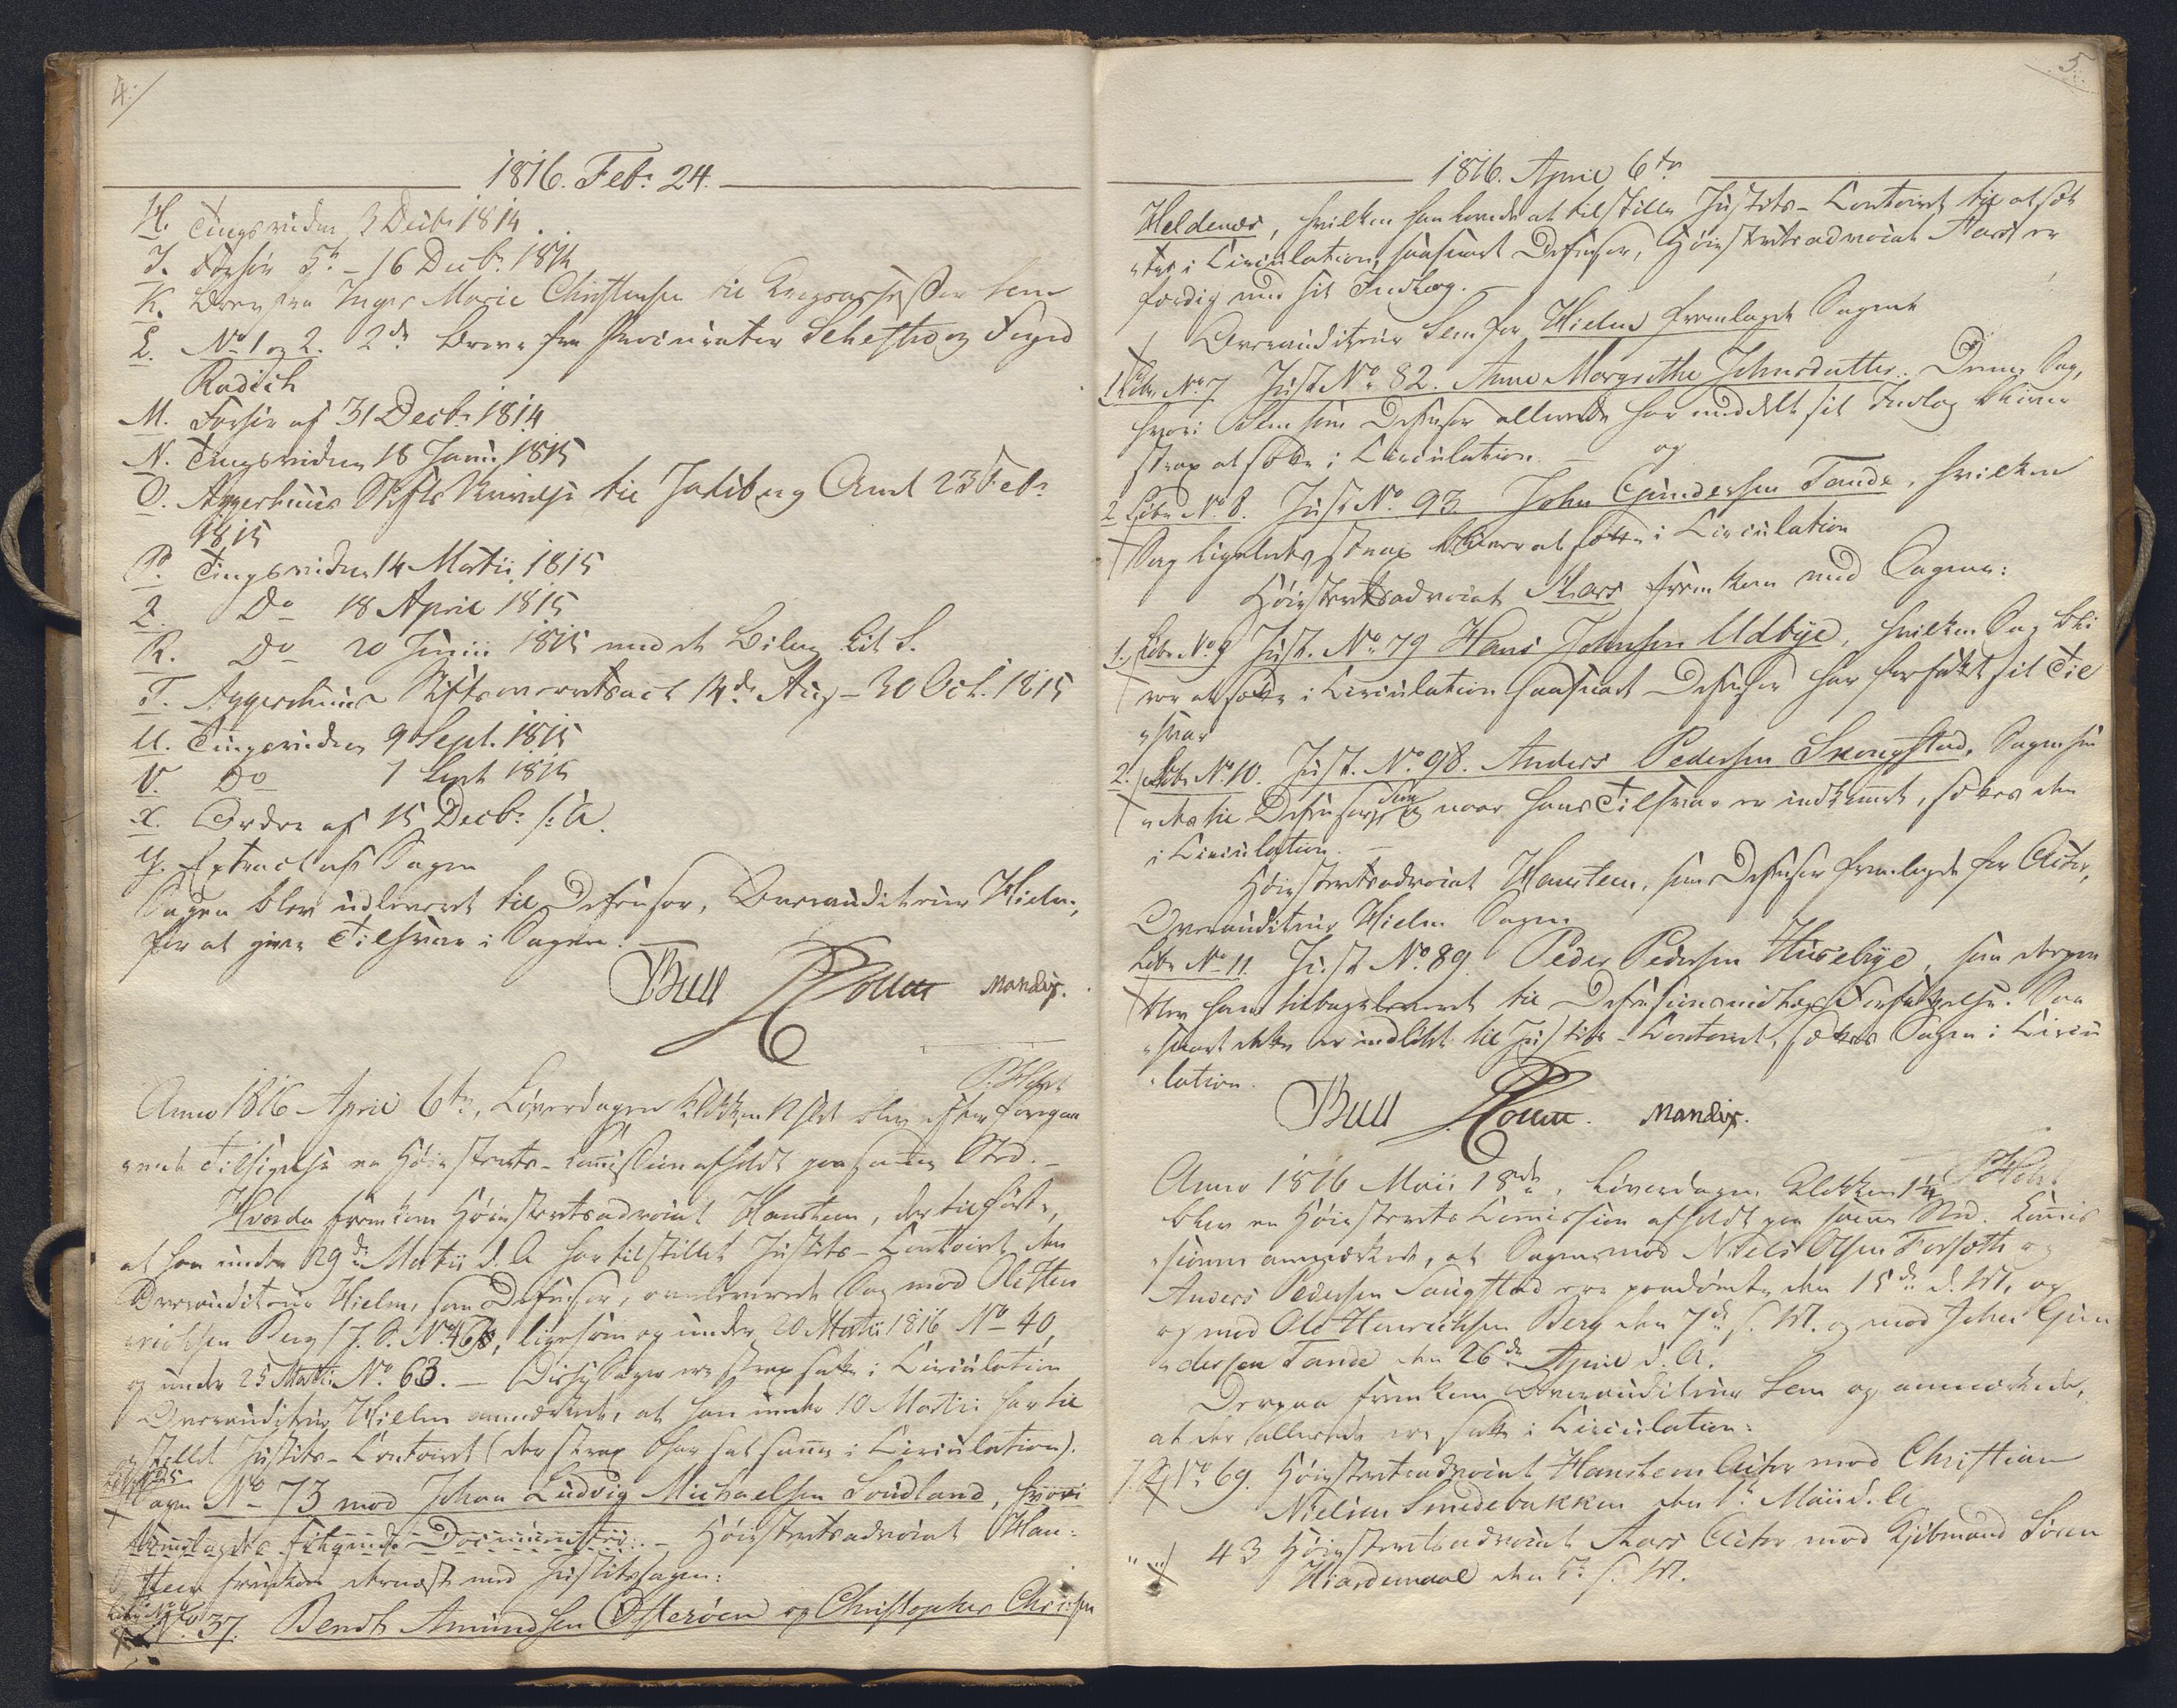 4./
1816. Febr. 24.
H. Tingsvidne 3 Decbr 1814.
I. Forhør 5te - 16 Decbr. 1814
K. Brev fra Inger Marie Christensen til Krigsassessor Lem
L. No 1 og 2. 2de Breve fra Procurator Schestho og Foged
Radich
M. Forhør af 31 Decbr 1814
N. Tingsvidne 18 Janu. 1815
O. Aggerhuus Stifts til Amt 23 Febr.
1815
P. Tingsvidne 14 Martii 1815
Q. Do 18 April 1815
R. Do 20 Junii 1815 med et Bilag Lit S.
T. Aggershuus Stiftsoverretsact 14de Aug - 30 Oct. 1815
U. Tingsvidne 9 Sept. 1815
V. Do 7 Sept 1815
X. Ordre af 15 Decbr. s: A.
Y. Extract af Sagen
Sagen blev udleveret til Defensor, Overauditeur Hielm,
for at give Tilsvar i Sagen. —
Bull Collett Mandix.
Anno 1816 April 6te, Løverdagen Klokken 12 Slet blev efter foregaa
ende Tilsigelse en Høiesterets-Commission afholdt paa samme Sted. —
Hvorda fremkom Høiesteretsadvocat Hansteen, der tilførte,
at han under 29de Martii d. A. har tilstillet Justits-Contoiret den
Overauditeur Hielm, som Defensor, overleverede Sag mod Ole Hen
richsen Berg J. S. No 46, ligesom og under 20 Martii 1816 No 40,
og under 25 Martii No 63. — Disse Sager ere strax satte i Circulation
Overauditeur Hielm anmærkede, at han under 10 Martii har til
stillet Justits-Contoiret (der strax har sat samme i Circulation).
Sagen No 73 mod Johan Ludvig Michaelsen Soudland, hvori
fremlagdes følgende Documenter: — Høiesteretsadvocat Han:
steen fremkom dernæst med Justitssagen:
No 37. Bendt Amundsen Østerøen og Christopher Chrisen
5.
1816. April 6te
Heldenes, hvilken han lovede at tilstille Justits-Contoiret til at sæt
tes i Circulation, saasnart Defensor, Høiesteretsadvocat Aars er
færdig med sit Indlæg. —
Overauditeur Lem for Hielm fremlagde Sagerne
1 Libr No 7 Just No 82. Anne Margrethe Johnsdatter. Denne Sag,
hvori Lem som Defensor allerede har meddelt sit Indlæg bliver
strax at sætte i Circulation. — og
2 Libr No 8. Just No 93 John Gundersen Tande, hvilken
Sag ligeledes strax bliver at sætte i Circulation
Høiesteretsadvocat Aars fremkom med Sagerne:
1. Libr No 9 Just. No 79 Hans Johnsen Udbye, hvilken Sag bli
ver at sætte i Circulation saasnart Defensor har forfattet sit Til
svar
2. Libr No 10. Just. No 98. Anders Pedersen Skougstad. Sagen sen
des til Defensor Lem og naar hans Tilsvar er indkommet, sættes den
i Circulation. —
Høiesteretsadvocat Hansteen, som Defensor fremlagde for Actor,
Overauditeur Hielm Sagen
Libr No 11. Just No 89. Peder Pedersen Husebye, som derpaa
blev ham tilbageleveret til Defensionsindlægs Forfattelse. Saa
snart dette er indløbet til Justits-Contoiret, sættes Sagen i Circu
lation.
Bull Collett. Mandix.
Anno 1816 Maii 18de, Løverdagen Klokken 1¼
blev en Høiesterets Commission afholdt paa samme Sted. Commis
sionen anmærkede, at Sagerne mod Niels Olsen Forsæth og
Anders Pedersen Saugstad ere paadømte den 15de d. M., og
og mod Ole Henrichsen Berg den 7de s. M. og mod John Gun
dersen Tande den 26de April d. A.
Derpaa fremkom Overauditeur Lem og anmærkede,
at der allerede ere satte i Circulation:
No 69. Høiesteretsadvocat Hansteen Actor mod Christian
Nielsen Smedebakken den 1te Maii d. A.
43 Høiesteretsadvocat Aars Actor mod Kjøbmand Søren
Hiardemaal den s. M.